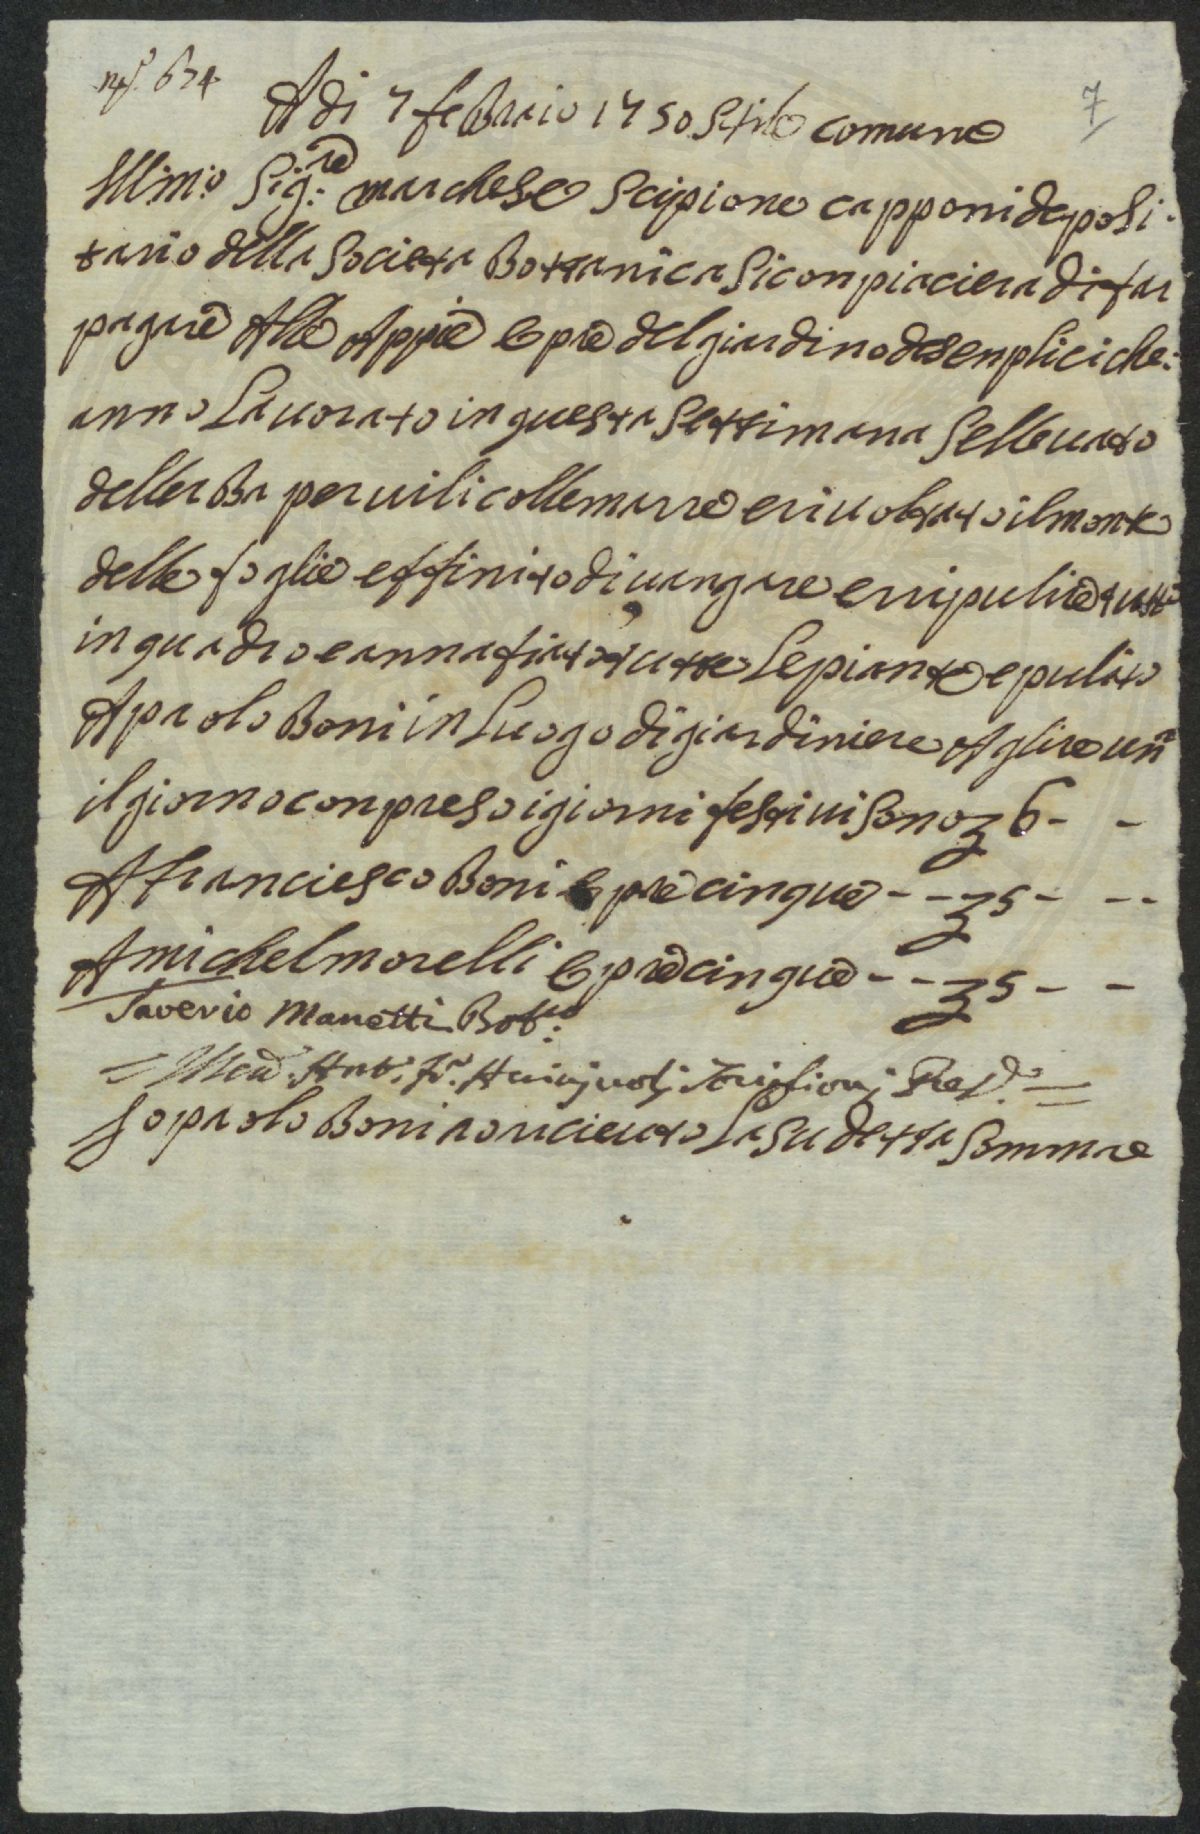 nº. 674
7
A di 7 febraio 1750 Stile comune
Illmo: Sig:re marchese Scipione capponi deposi-
tario della Societa Bottanica Si conpiaciera di far
pagare Alle Appie e opre del giardino de senplici che:
anno Lauorato in questa Settimana Selleuato
dellerba per uili colle marre e riuoltato il monte
delle foglie effinito di uangare erripulire
in quadro e annafiato tutte Le piante e pulito
A paolo Boni in Luogo di giardiniere A glire un
il giorno conpreso i giorni festiui Sono 6 - -
A franciesco Boni opre cinque - - 5 - - -
A michel morelli opre cinque - - 5 - -
Saverio Manetti Botco:
Io paolo Boni o riceuto La Su detta Somma